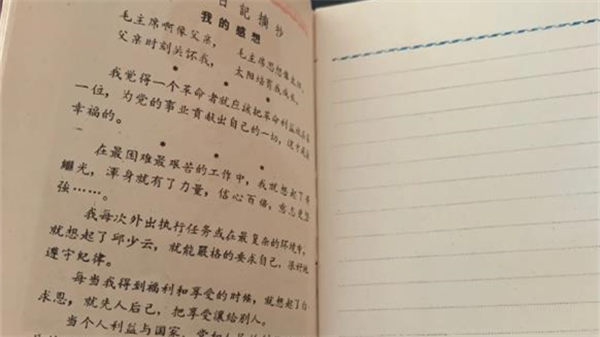 日記摘抄
我的感想
毛主席啊像父亲， 毛主席思想像太阳，
父亲时刻关怀我， 太阳培育我成长。
我觉得一个革命者就应该把革命利益放在第
一位，为党的事业贡献出自己的一切，这才是最
幸福的。
在最困难最艰苦的工作中，我就想起了黄
繼光，渾身就有了力量，信心百倍，意志更坚
強……。
我每次外出执行任务或在最复杂的环境中，
就想起了邱少云，就能嚴格的要求自己，很好地
遵守纪律。
每当我得到福利和享受的时候，就想起了白
求恩，就先人后己，把享受讓给別人。
当个人利益与国家、党和人民的